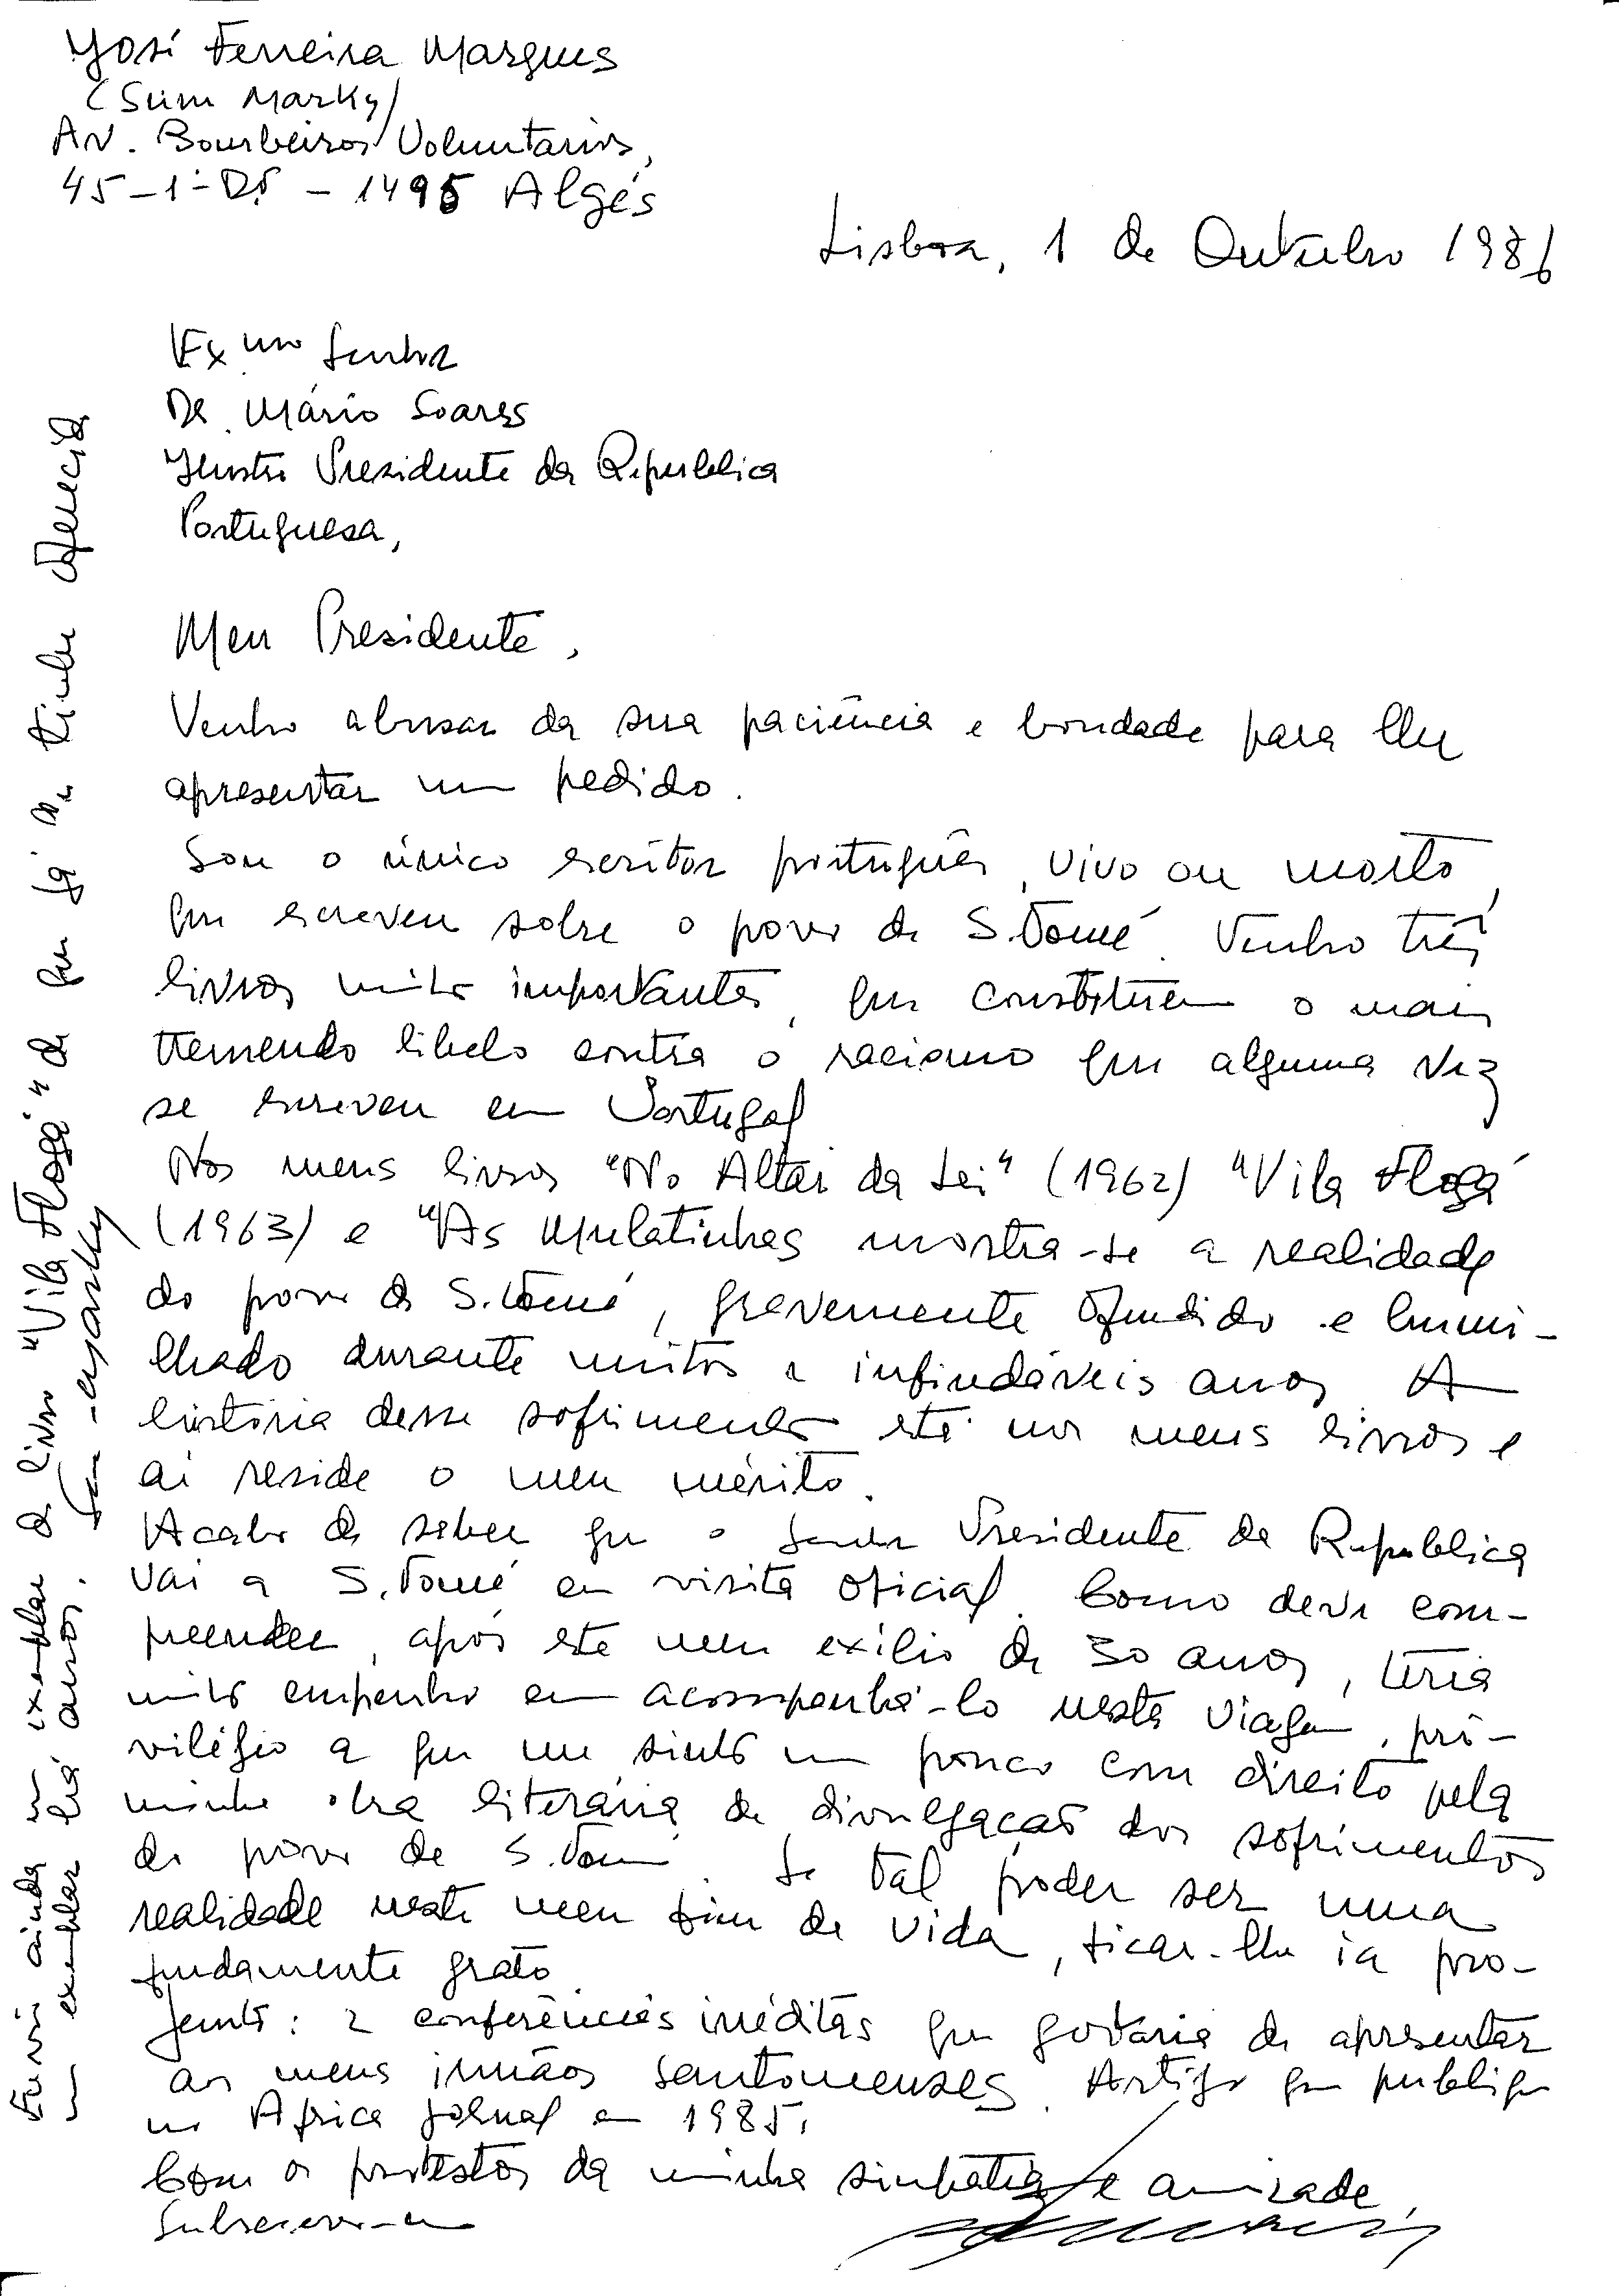 José Ferreira Marques
(Sum Marky)
Av. Bombeiros Voluntarios,
45-1º Dt. - 1495 Algés
Lisboa, 1 de Outubro 1986
Exmo Senhor
Dr. Mário Soares
Ilustre Presidente da Republica
Portuguesa,
Meu Presidente,
Venho abusar da sua paciência e bondade para lhe
apresentar um pedido.
Sou o único escritor português, vivo ou morto,
que escreveu sobre o povo de S. Tomé. Tenho três
livros muito importantes, que constituem o mais
tremendo libelo contra o racismo que alguma vez
se escreveu em Portugal
Nos meus livros "No Altar da Lei" (1962) "Vila Flogá
(1963) e "As Mulatinhas mostra-se a realidade
do povo de S. Tomé, gravemente ofendido e humi-
lhado durante muitos e infindáveis anos. A
história desse sofrimento está nos meus livros e
aí reside o meu mérito.
Acabo de saber que o Senhor Presidente da Republica
vai a S. Tomé em visita oficial. Como deve com-
preender, após este meu exílio de 30 anos, teria
muito empenho em acompanhá-lo nesta viagem, pri-
vilégio a que me sinto um pouco com direito pela
minha obra literária de divulgação dos sofrimentos
do povo de S. Tomé. Se tal poder ser uma
realidade neste meu fim de vida, ficar-lhe ia pro-
fundamente grato.
Junto: 2 conferências inéditas que gostaria de apresentar
aos meus irmãos santomenses. Artigo que publiquei
no Africa Jornal em 1985.
Com os protestos da minha simpatia e amizade,
Subscrevo-me
Envio ainda um exemplar do livro "Vila Flogá" de que já não tinha oferecido
um exemplar há anos. Sum Marky